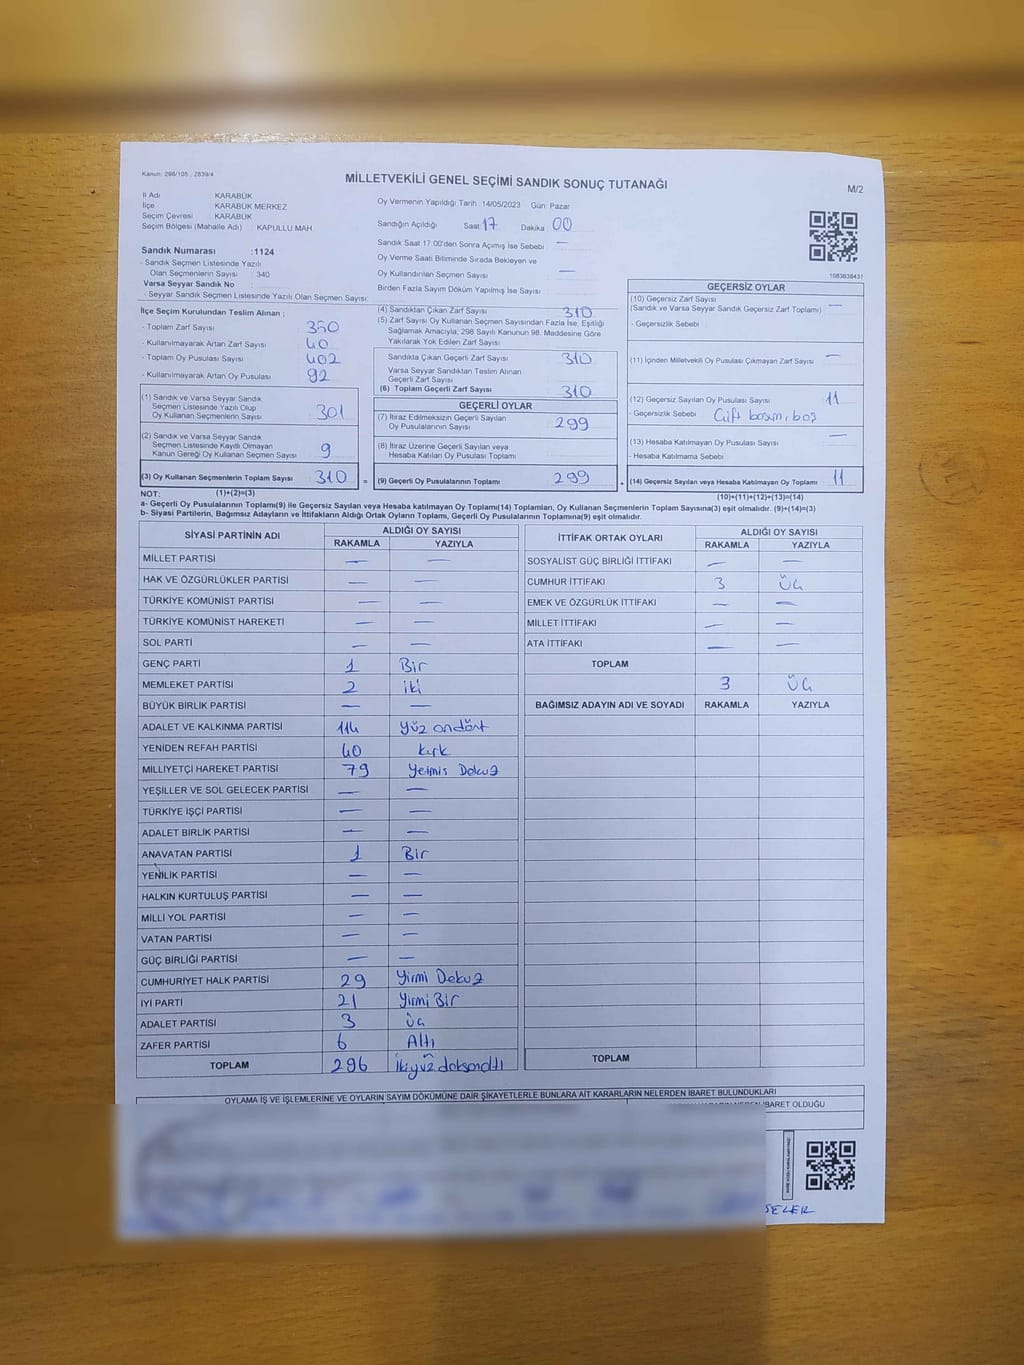 Kanun: 298/105 , 2839/4
MİLLETVEKİLİ GENEL SEÇİMİ SANDIK SONUÇ TUTANAĞI
M/2
İl Adı KARABÜK
İlçe KARABÜK MERKEZ
Seçim Çevresi KARABÜK
Seçim Bölgesi (Mahalle Adı) KAPULLU MAH.
Oy Vermenin Yapıldığı Tarih :14/05/2023 Gün: Pazar
Sandığın Açıldığı Saat 17 Dakika 00
Sandık Saat 17:00'den Sonra Açımış İse Sebebi —
Oy Verme Saati Bitiminde Sırada Bekleyen ve
Oy Kullandırılan Seçmen Sayısı —
Birden Fazla Sayım Döküm Yapılmış İse Sayısı
1083638431
Sandık Numarası :1124
- Sandık Seçmen Listesinde Yazılı
Olan Seçmenlerin Sayısı 340
Varsa Seyyar Sandık No :
- Seyyar Sandık Seçmen Listesinde Yazılı Olan Seçmen Sayısı:
İlçe Seçim Kurulundan Teslim Alınan ;
- Toplam Zarf Sayısı 350
- Kullanılmayarak Artan Zarf Sayısı 40
- Toplam Oy Pusulası Sayısı 402
- Kullanılmayarak Artan Oy Pusulası 92
(1) Sandık ve Varsa Seyyar Sandık
Seçmen Listesinde Yazılı Olup
Oy Kullanan Seçmenlerin Sayısı 301
(2) Sandık ve Varsa Seyyar Sandık
Seçmen Listesinde Kayıtlı Olmayan
Kanun Gereği Oy Kullanan Seçmen Sayısı 9
(3) Oy Kullanan Seçmenlerin Toplam Sayısı 310 =
(1)+(2)=(3)
(4) Sandıktan Çıkan Zarf Sayısı 310
(5) Zarf Sayısı Oy Kullanan Seçmen Sayısından Fazla İse, Eşitliği
Sağlamak Amacıyla; 298 Sayılı Kanunun 98. Maddesine Göre
Yakılarak Yok Edilen Zarf Sayısı
Sandıkta Çıkan Geçerli Zarf Sayısı 310
Varsa Seyyar Sandıktan Teslim Alınan
Geçerli Zarf Sayısı
(6) Toplam Geçerli Zarf Sayısı 310
GEÇERLİ OYLAR
(7) İtiraz Edilmeksizin Geçerli Sayılan
Oy Pusulalarının Sayısı 299
(8) İtiraz Üzerine Geçerli Sayılan veya
Hesaba Katılan Oy Pusulası Toplamı
(9) Geçerli Oy Pusulalarının Toplamı 299 +
GEÇERSİZ OYLAR
(10) Geçersiz Zarf Sayısı
(Sandık ve Varsa Seyyar Sandık Geçersiz Zarf Toplamı) —
- Geçersizlik Sebebi :
(11) İçinden Milletvekili Oy Pusulası Çıkmayan Zarf Sayısı —
(12) Geçersiz Sayılan Oy Pusulası Sayısı 11
- Geçersizlik Sebebi Çift basım, boş
(13) Hesaba Katılmayan Oy Pusulası Sayısı —
- Hesaba Katılmama Sebebi
(14) Geçersiz Sayılan veya Hesaba Katılmayan Oy Toplamı 11
(10)+(11)+(12)+(13)=(14)
NOT:
a- Geçerli Oy Pusulalarının Toplamı(9) ile Geçersiz Sayılan veya Hesaba katılmayan Oy Toplamı(14) Toplamları, Oy Kullanan Seçmenlerin Toplam Sayısına(3) eşit olmalıdır. (9)+(14)=(3)
b- Siyasi Partilerin, Bağımsız Adayların ve İttifakların Aldığı Ortak Oyların Toplamı, Geçerli Oy Pusulalarının Toplamına(9) eşit olmalıdır.
SİYASİ PARTİNİN ADI ALDIĞI OY SAYISI
RAKAMLA YAZIYLA
MİLLET PARTİSİ — —
HAK VE ÖZGÜRLÜKLER PARTİSİ — —
TÜRKİYE KOMÜNİST PARTİSİ — —
TÜRKİYE KOMÜNİST HAREKETİ — —
SOL PARTİ — —
GENÇ PARTİ 1 Bir
MEMLEKET PARTİSİ 2 iki
BÜYÜK BİRLİK PARTİSİ — —
ADALET VE KALKINMA PARTİSİ 114 Yüz ondört
YENİDEN REFAH PARTİSİ 40 kırk
MİLLİYETÇİ HAREKET PARTİSİ 79 Yetmis Dokuz
YEŞİLLER VE SOL GELECEK PARTİSİ — —
TÜRKİYE İŞÇİ PARTİSİ — —
ADALET BİRLİK PARTİSİ — —
ANAVATAN PARTİSİ 1 Bir
YENİLİK PARTİSİ — —
HALKIN KURTULUŞ PARTİSİ — —
MİLLİ YOL PARTİSİ — —
VATAN PARTİSİ — —
GÜÇ BİRLİĞİ PARTİSİ — —
CUMHURİYET HALK PARTİSİ 29 Yirmi Dokuz
İYİ PARTİ 21 Yirmi Bir
ADALET PARTİSİ 3 üç
ZAFER PARTİSİ 6 Altı
TOPLAM 296 ikiyüz doksanaltı
İTTİFAK ORTAK OYLARI ALDIĞI OY SAYISI
RAKAMLA YAZIYLA
SOSYALİST GÜÇ BİRLİĞİ İTTİFAKI — —
CUMHUR İTTİFAKI 3 ÜÇ
EMEK VE ÖZGÜRLÜK İTTİFAKI — —
MİLLET İTTİFAKI — —
ATA İTTİFAKI — —
TOPLAM
3 ÜÇ
BAĞIMSIZ ADAYIN ADI VE SOYADI RAKAMLA YAZIYLA
TOPLAM
OYLAMA İŞ VE İŞLEMLERİNE VE OYLARIN SAYIM DÖKÜMÜNE DAİR ŞİKAYETLERLE BUNLARA AİT KARARLARIN NELERDEN İBARET BULUNDUKLARI
İBARET OLDUĞU